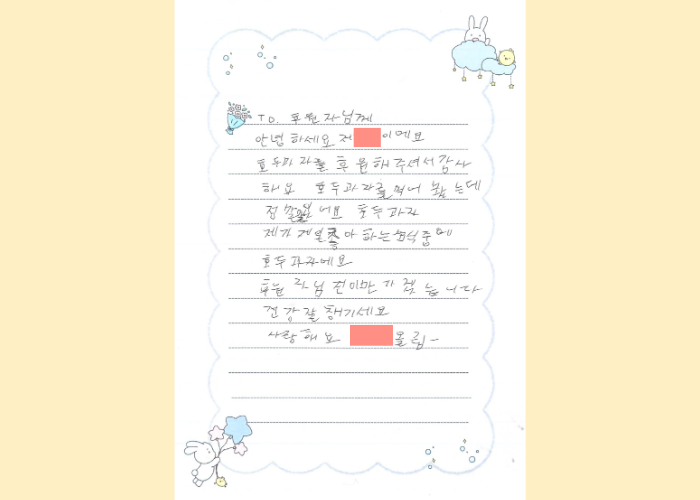 TO. 후원자님께
안녕하세요 저 이에요
호두과자를 후원해주셔서 감사
해요 호두과자를 먹어 봤는데
호두과자
제가 제일 좋아하는 음식중에
호두과자에요
후원자님 전 이만 가겠습니다
건강 잘 챙기세요
사랑해요 올림-